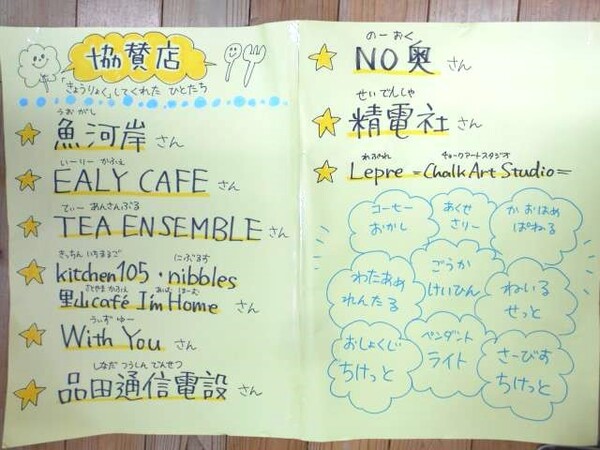 協賛店
「きょうりょく」してくれた ひとたち
うおがし
魚河岸 さん
いーりー かふぇ
EALY CAFE さん
てぃー あんさんぶる
TEA ENSEMBLE さん
きっちん いちまるご にぶるす
kitchen105・nibbles
さとやま かふぇ あいむ ほーむ
里山café I'm Home さん
うぃず ゆー
With You さん
しなだ つうしん でんせつ
品田通信電設 さん
のー おく
NO奥 さん
せい でんしゃ
精電社 さん
れぷれ チョークアートスタジオ
Lepre =Chalk Art Studio=
コーヒー
おかし
あくせ
さりー
か おはめ
ぱねる
わたあめ
れんたる
ごうか
けいひん
ねいる
せっと
おしょくじ
ちけっと
ペンダント
ライト
さーびす
ちけっと